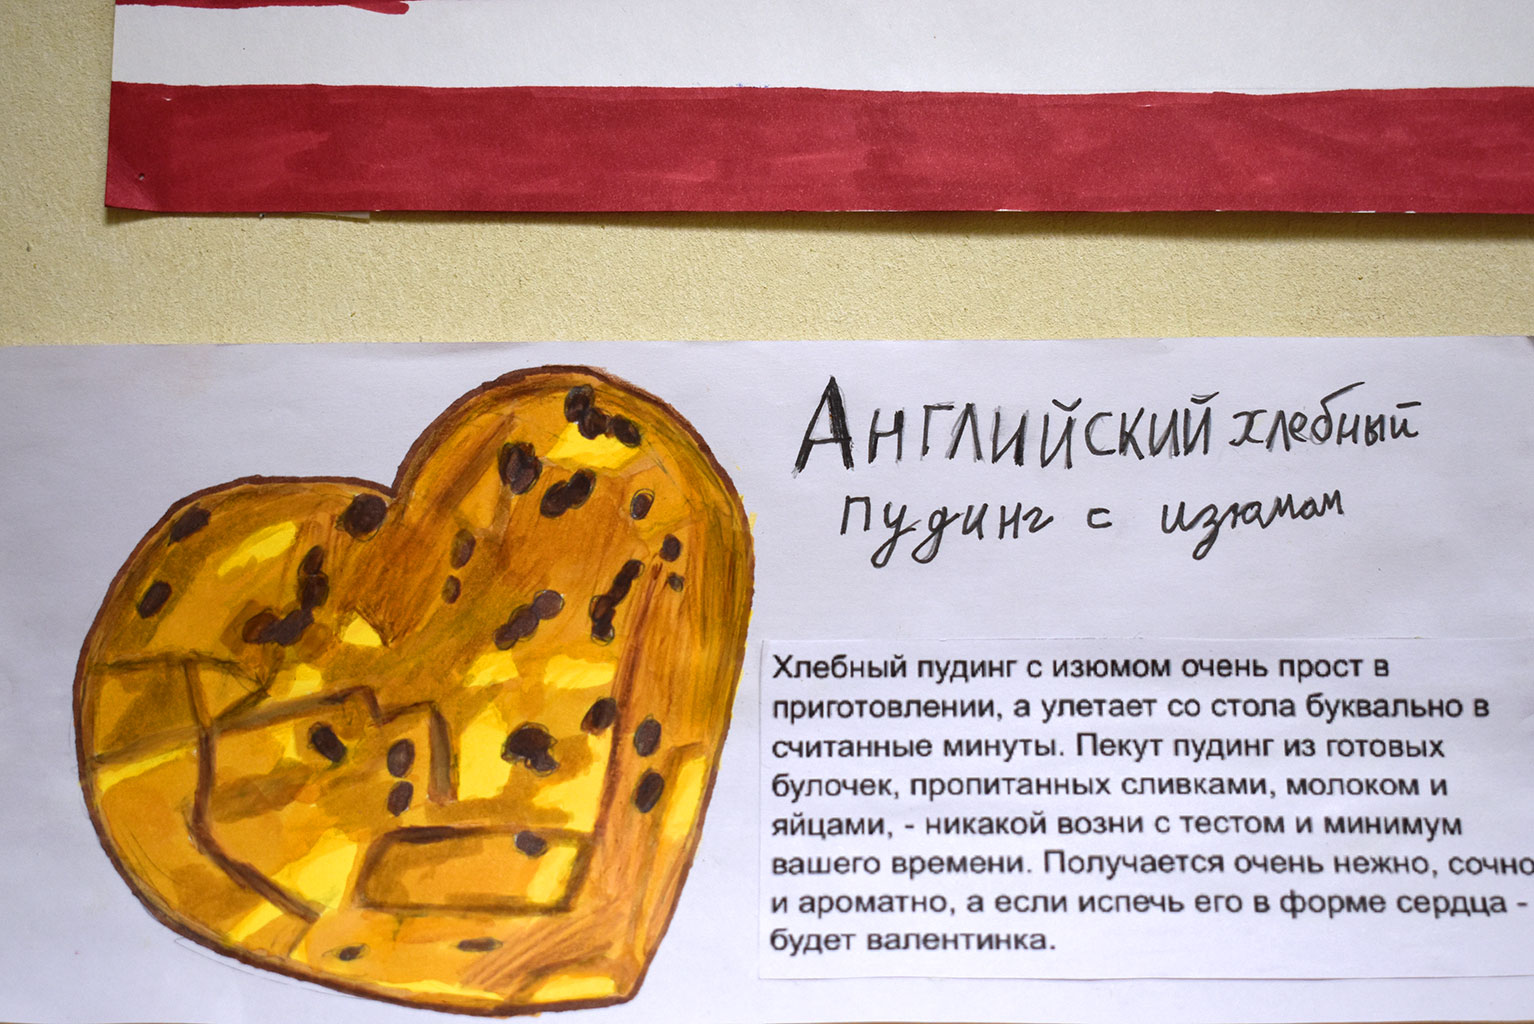 Английский хлебный
пудинг с изюмом
Хлебный пудинг с изюмом очень прост в
приготовлении, а улетает со стола буквально в
считанные минуты. Пекут пудинг из готовых
булочек, пропитанных сливками, молоком и
яйцами, - никакой возни с тестом и минимум
вашего времени. Получается очень нежно, сочно
и ароматно, а если испечь его в форме сердца -
будет валентинка.